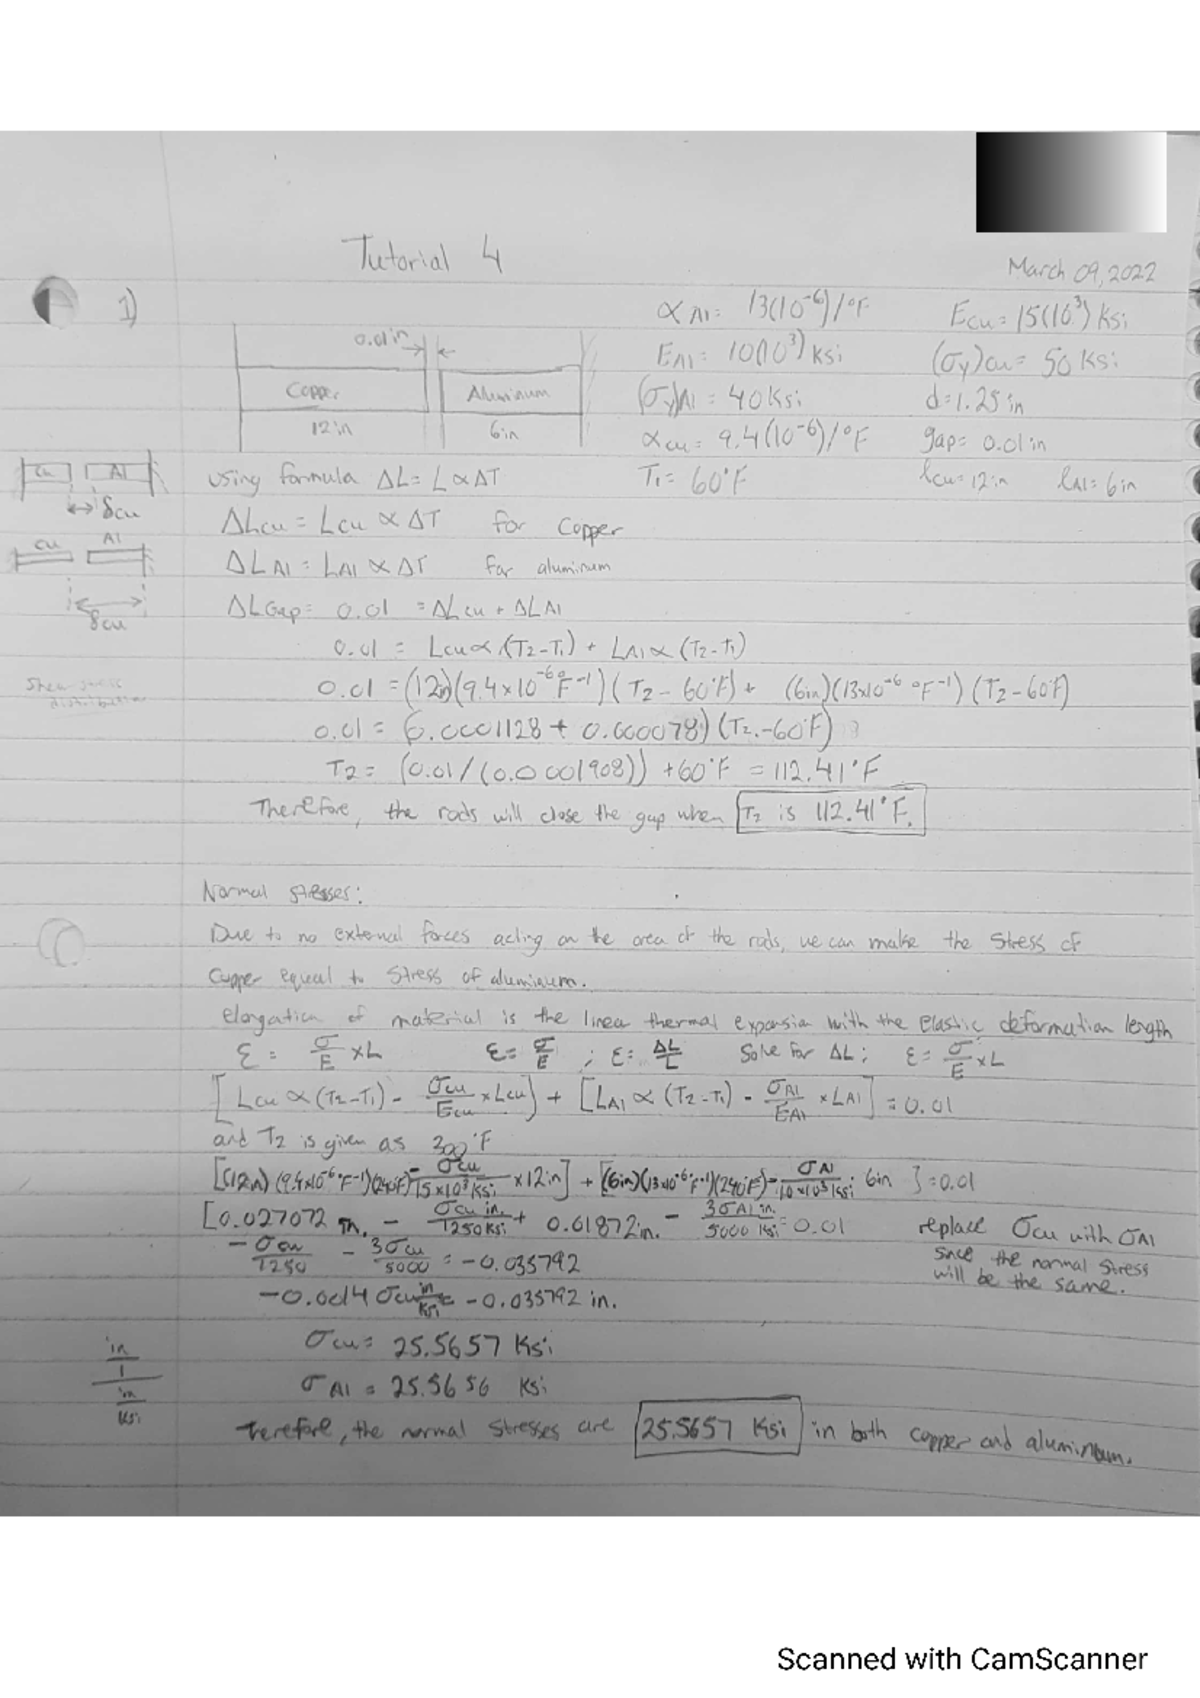 Tutorial 4
March 09, 2022
1)
0.01in
Copper
Aluminum
12in
6in
α Al = 13(10⁻⁶)/°F
E Al = 10(10³) ksi
(σy)Al = 40 Ksi
α cu = 9.4(10⁻⁶)/°F
T₁ = 60°F
Ecu = 15(10³) ksi
(σy)cu = 50 ksi
d = 1.25 in
gap = 0.01 in
Lcu = 12in LAl = 6in
Cu Al
δcu
Cu Al
δcu
using formula ΔL = L α ΔT
ΔLcu = Lcu α ΔT for copper
ΔL Al = LAl α ΔT for aluminum
ΔLGap = 0.01 = ΔLcu + ΔLAl
0.01 = Lcu α (T₂-T₁) + LAl α (T₂-T₁)
Shear stress
distribution
0.01 = (12in)(9.4×10⁻⁶ °F⁻¹)(T₂ - 60°F) + (6in)(13×10⁻⁶ °F⁻¹)(T₂ - 60°F)
0.01 = (0.0001128 + 0.000078)(T₂ - 60°F)
T₂ = (0.01/(0.0001908)) + 60°F = 112.41°F
Therefore, the rods will close the gap when T₂ is 112.41°F.
Normal stresses:
Due to no external forces acting on the area of the rods, we can make the stress of
copper equal to stress of aluminum.
elongation of material is the linear thermal expansion with the elastic deformation length
ε = σ/E × L ε = σ/E ; ε = ΔL/L Solve for ΔL ; ε = σ/E × L
[Lcu α (T₂-T₁) - σcu/Ecu × Lcu] + [LAl α (T₂-T₁) - σAl/EAl × LAl] = 0.01
and T₂ is given as 300°F
[(12in)(9.4×10⁻⁶ °F⁻¹)(240°F) - σcu/15×10³ ksi × 12in] + [(6in)(13×10⁻⁶ °F⁻¹)(240°F) - σAl/10×10³ ksi 6in] = 0.01
[0.027072 in. - σcu in./1250 ksi + 0.01872in. - 3σAl in./5000 ksi = 0.01
replace σcu with σAl
since the normal stress
will be the same.
-σcu/1250 - 3σcu/5000 = -0.035792
-0.0014 σcu in/ksi = -0.035792 in.
σcu = 25.5657 Ksi
σAl = 25.5656 Ksi
in/1
in/ksi
therefore, the normal stresses are 25.5657 Ksi in both copper and aluminum.
Scanned with CamScanner